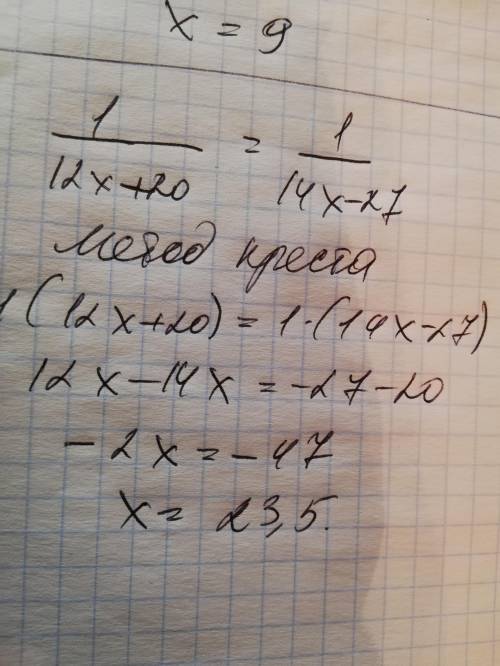 x = 9
1/(12x+20) = 1/(14x-27)
Метод креста
1(12x+20) = 1·(14x-27)
12x-14x = -27-20
-2x = -47
x = 23,5.